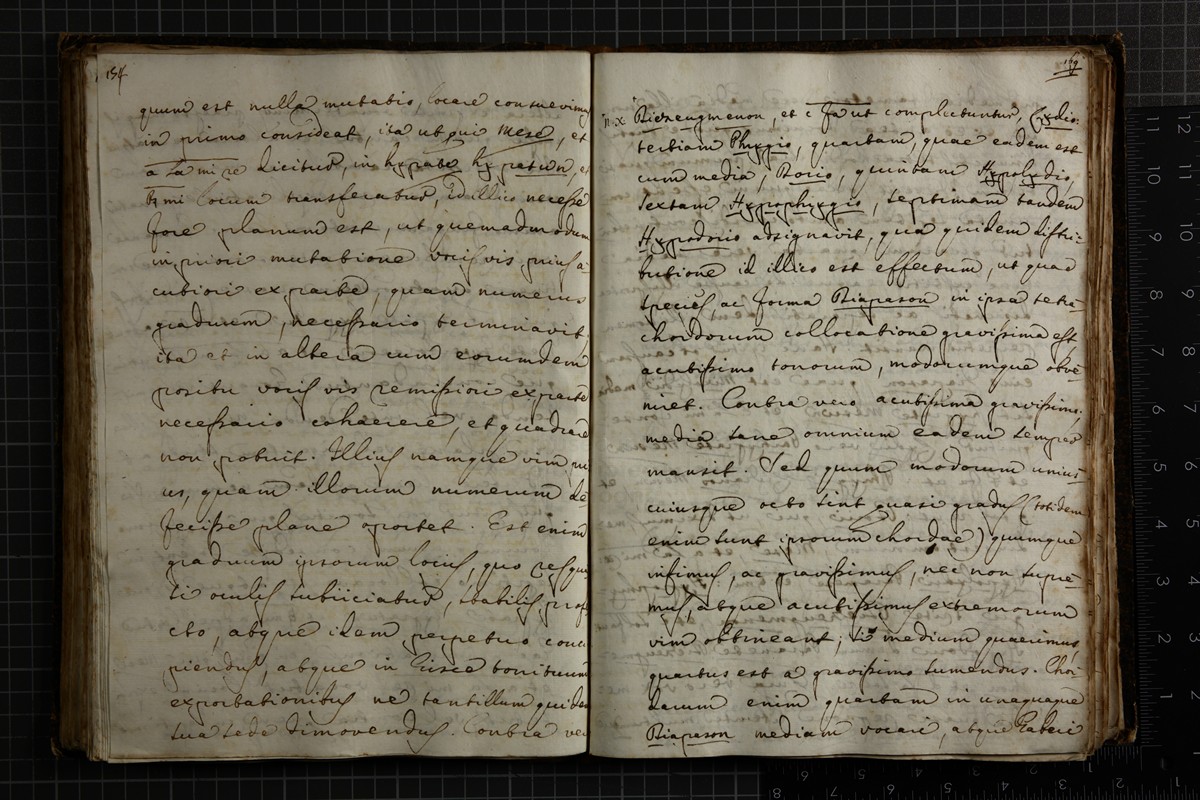 154
quum est nulla mutatio, locare consuevimus
in primo consideat, ita ut qui mese, et
a la mi re dicitur, in hypate hypaton, et
♮ mi locum transferatur, id illico necesse
fore planum est, ut quemadmodum
in priori mutatione vocis vis prius a
cutiori ex parte, quam numerus
graduum, necessario terminavit,
ita et in altera cum eorumdem
positu vocis vis remissiori ex parte
necessario cohaerere, et quadrare
non potuit. Illius namque vim pri
us, quam illorum numerum de
fecisse plane oportet. Est enim
graduum ipsorum locus, quo res quasi
si oculis subiiciatur, stabilis prof
cto, atque idem perpetuo conci
piendus, atque in hisce tonituum
exportationibus ne tantillum quidem
sua sede dimovendus. Contra ve
169
n. x. Diezeugmenon, et c fa ut complectuntur, Lydio:
tertiam Phrygio, quartam, quae eadem est
cum media, Dorio, quintam Hypolydio,
sextam Hypophrygio, septimam tandem
Hypodorio adsignavit, qua quidem distri-
butione id illico est effectum, ut quae
species, ac forma Diapason in ipsa tetra
chordorum collocatione gravissima est,
acutissimo tonorum, modorumque obve
niret. Contra vero acutissima gravissimo,
media sane omnium eadem semper
mansit. Sed quum modorum unius
cuiusque octo sint quasi gradus (totidem
enim sunt ipsorum chordae) quumque
infimus, ac gravissimus, nec non supre-
mus, atque acutissimus extremorum
vim obtineant; si medium quaerimus,
quartus est a gravissimo sumendus. Chor
darum enim quartam in unaquaque
Diapason mediam vocari, atque haberi